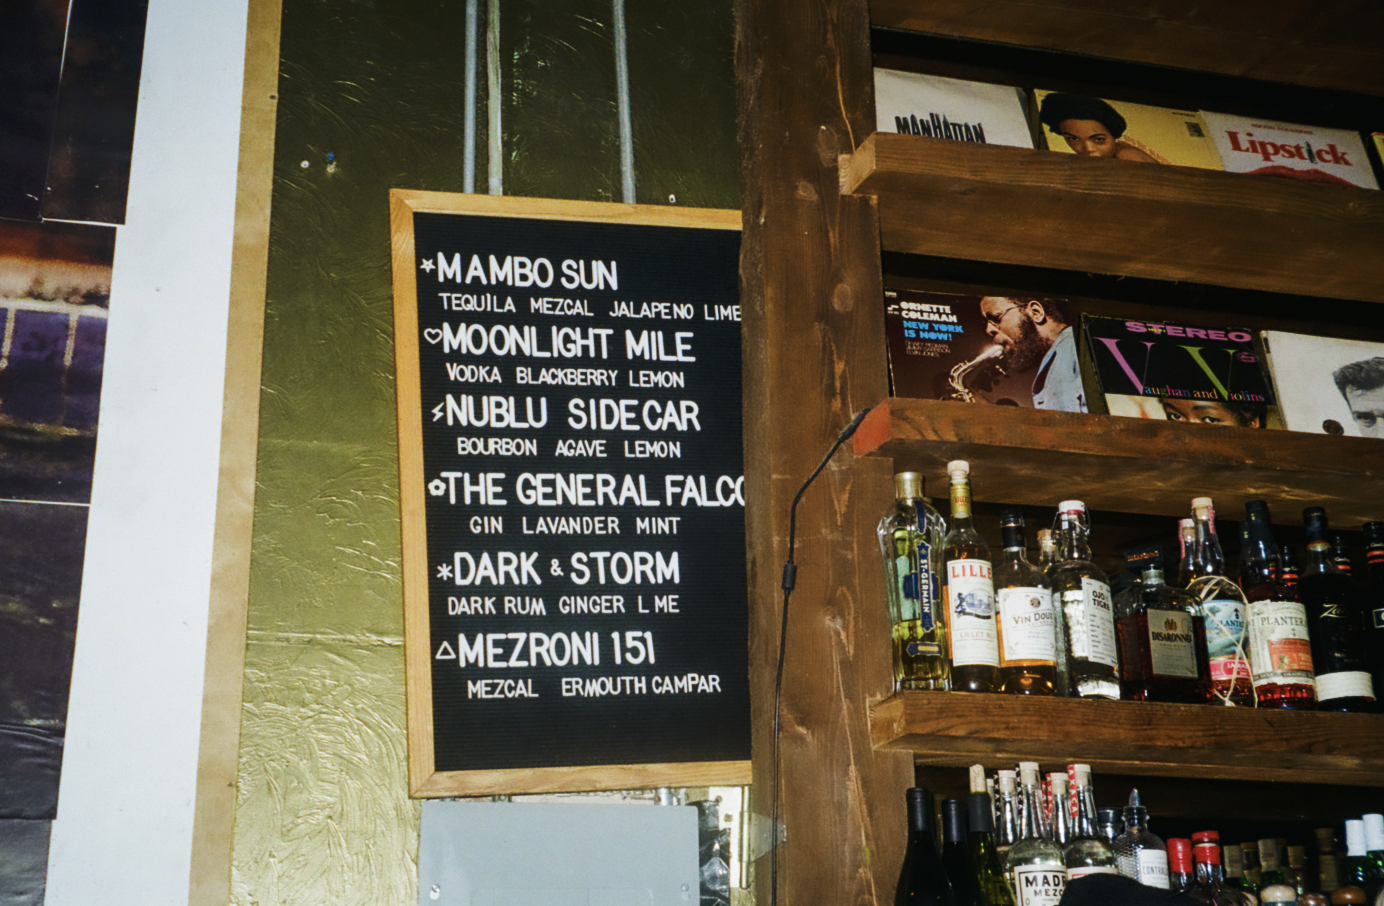 MAMBO SUN
TEQUILA MEZCAL JALAPENO LIME
MOONLIGHT MILE
VODKA BLACKBERRY LEMON
NUBLU SIDECAR
BOURBON AGAVE LEMON
THE GENERAL FALCO
GIN LAVANDER MINT
DARK & STORM
DARK RUM GINGER L ME
MEZRONI 151
MEZCAL ERMOUTH CAMPAR
MANHATTAN
Lipstick
ORNETTE
COLEMAN
NEW YORK
IS NOW!
STEREO
Vaughan and Violins
ST-GERMAIN
LILLE
VIN DOU
OJO
TIGRE
DISARONNO
PLANTER
MAD
MEZC